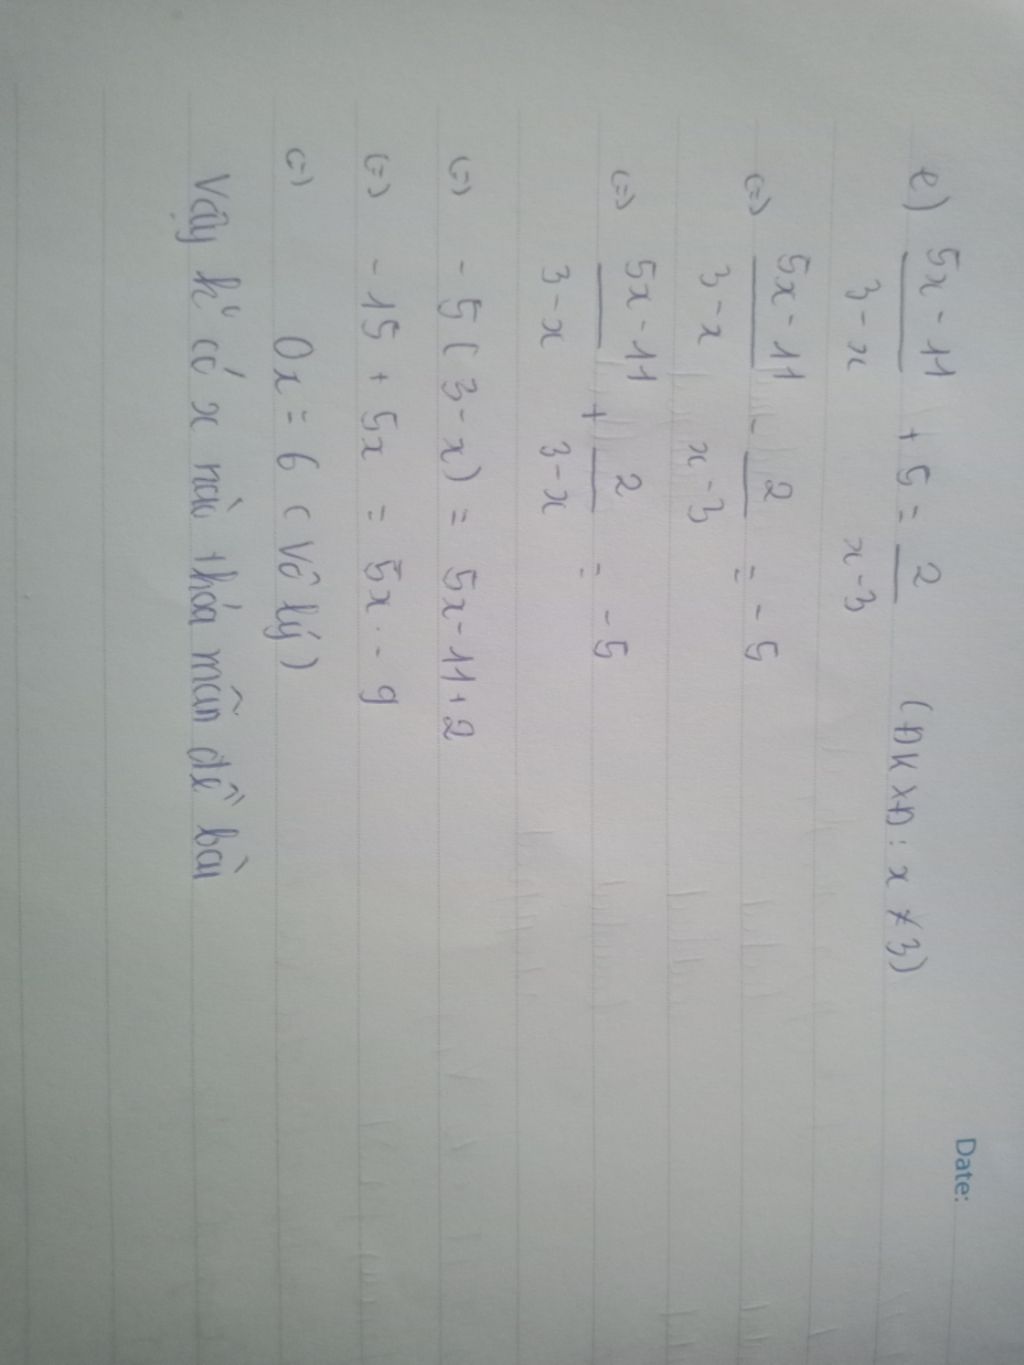 Date:
e) (5x - 11)/(3 - x) + 5 = 2/(x - 3) (ĐKXĐ: x ≠ 3)
(=) (5x - 11)/(3 - x) - 2/(x - 3) = - 5
(=) (5x - 11)/(3 - x) + 2/(3 - x) = - 5
(=) - 5 (3 - x) = 5x - 11 + 2
(=) - 15 + 5x = 5x - 9
(=) 0x = 6 (Vô lý)
Vậy k° có x nào thỏa mãn đề bài